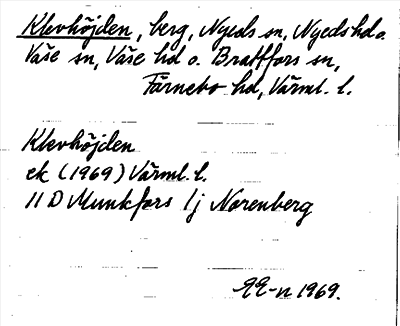 Klevhöjden, berg, Nyeds sn, Nyeds hd o.
Väse sn, Väse hd o. Brattfors sn,
Färnebo hd, Värml. l.
Klevhöjden
ek (1969) Värml. l.
11 D Munkfors 1j Norenberg
1969.